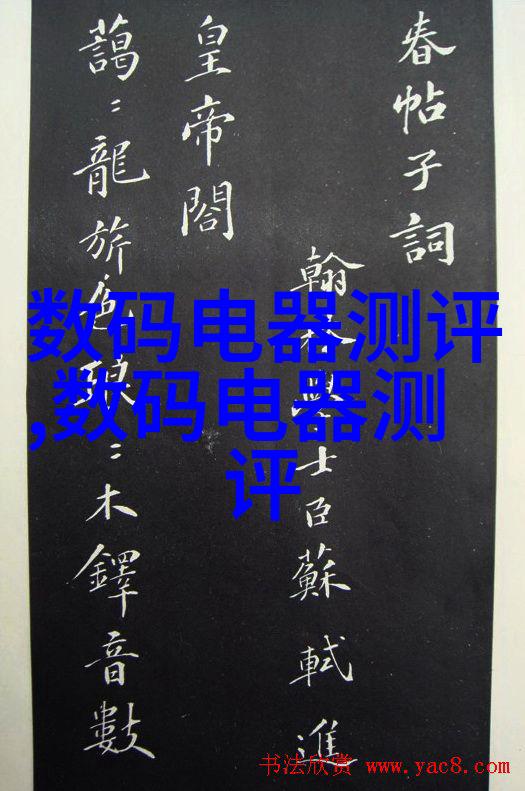 春帖子詞
翰林學士臣蘇軾進
皇帝閤
藹〻龍旂色琅〻木鐸音數
数码电器测评
,数码电器测
评
书法欣赏 www.yac8.com